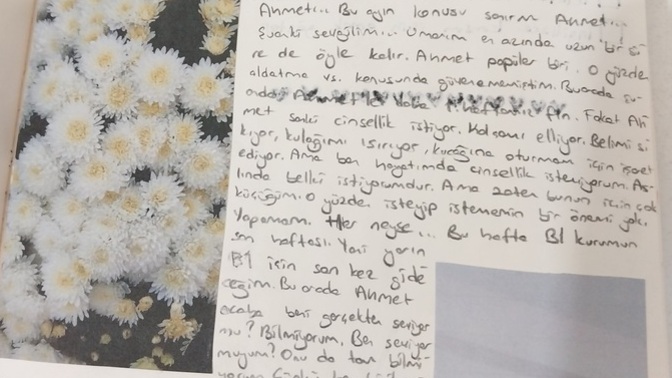 Ahmet... Bu ayın konusu sanırım Ahmet...
Şuanki sevgilim... Umarım en azında uzun bir sü
re de öyle kalır. Ahmet popüler biri. O yüzden
aldatma vs. konusunda güvenememiştim. Bu arada şu
Fakat Ah
met sanki cinsellik istiyor. elliyor. Belimi sı
kıyor, kulağımı ısırıyor, kucağına oturmam için işaret
ediyor. Ama ben hayatımda cinsellik istemiyorum. As
lında belki istiyorumdur. Ama zaten bunun için çok
küçüğüm. O yüzden isteyip istemenin bir önemi yok.
Yapamam. Her neyse... Bu hafta B1 kurumun
son haftası. Yani yarın
B1 için son kez gide
ceğim. Bu arada Ahmet
acaba beni gerçekten seviyor
mu? Bilmiyorum. Ben seviyor
muyum? Onu da tam bilmi
yorum